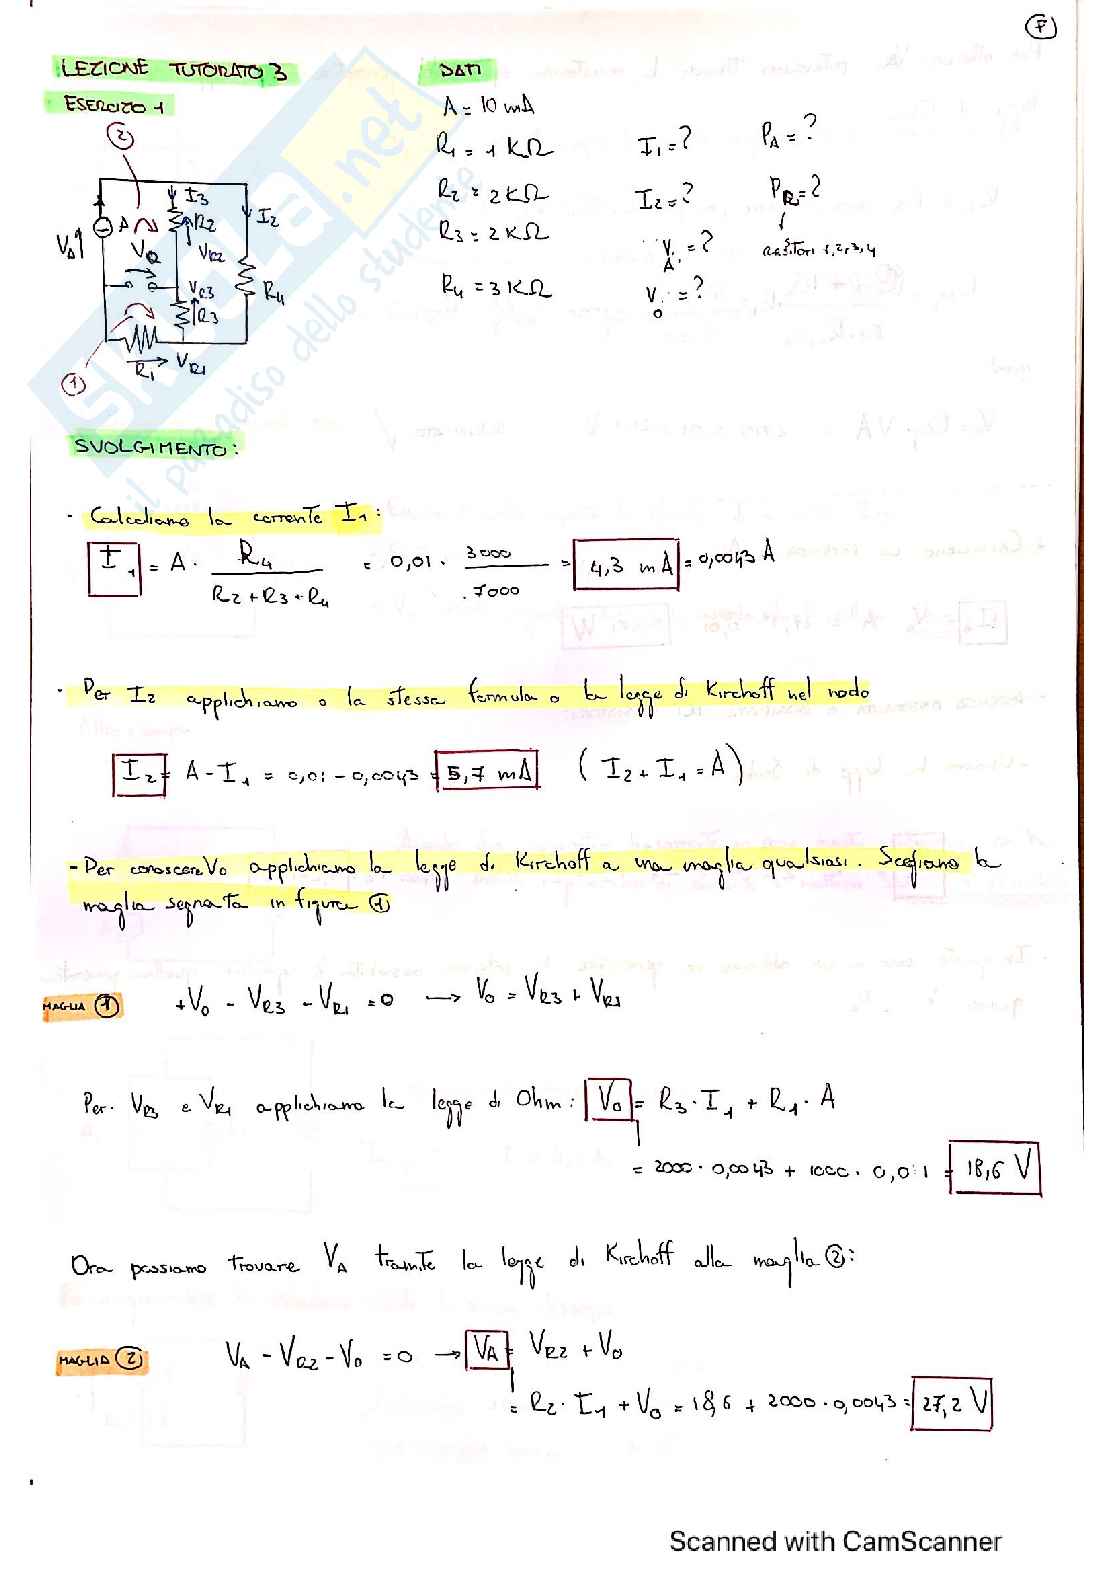 F
LEZIONE TUTORATO 3
DATI
ESERCIZIO 1
A = 10 mA
R1 = 1 KΩ
I1 = ?
PA = ?
R2 = 2 KΩ
I2 = ?
PRi = ?
R3 = 2 KΩ
VA = ?
RESISTORI 1,2,3,4
R4 = 3 KΩ
V0 = ?
2
I3
I2
VA
A
R2
V0
VR2
VR3
R3
R4
R1
VR1
1
Skuola.net
il paradiso dello studente
SVOLGIMENTO:
· Calcoliamo la corrente I1:
I1 = A · R4 / (R2 + R3 + R4) = 0,01 · 3000 / 7000 = 4,3 mA = 0,0043 A
· Per I2 applichiamo o la stessa formula o la legge di Kirchoff nel nodo
I2 = A - I1 = 0,01 - 0,0043 = 5,7 mA (I2 + I1 = A)
- Per conoscere V0 applichiamo la legge di Kirchoff a una maglia qualsiasi. Scegliamo la
maglia segnata in figura 1
MAGLIA 1 +V0 - VR3 - VR1 = 0 → V0 = VR3 + VR1
Per VR3 e VR1 applichiamo la legge di Ohm: V0 = R3 · I1 + R1 · A
= 2000 · 0,0043 + 1000 · 0,01 = 18,6 V
Ora possiamo trovare VA tramite la legge di Kirchoff alla maglia 2:
MAGLIA 2 VA - VR2 - V0 = 0 → VA = VR2 + V0
= R2 · I1 + V0 = 18,6 + 2000 · 0,0043 = 27,2 V
Scanned with CamScanner